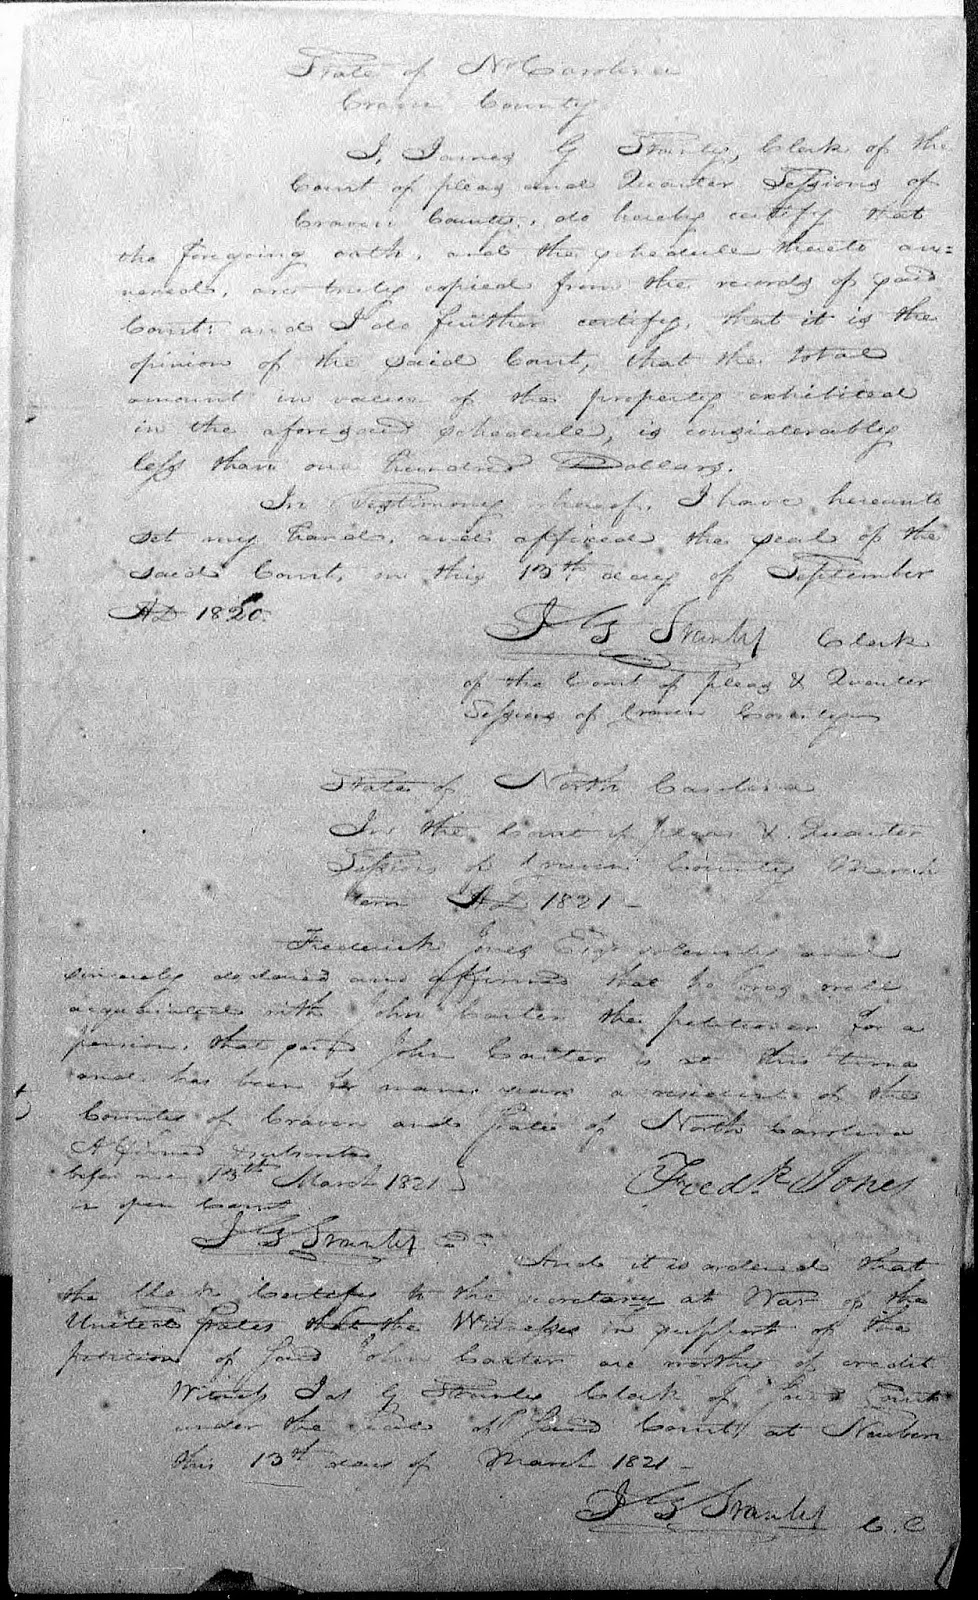 State of No Carolina
Craven County
I, James G Stanly, Clerk of the
Court of pleas and Quarter Sessions of
Craven County, do hereby certify that
the foregoing oath, and the schedule thereto an=
nexed, are truly copied from the records of said
Court: and I do further certify, that it is the
opinion of the said Court, that the total
amount in value of the property exhibited
in the aforesaid schedule, is considerably
less than one hundred Dollars.
In Testimony whereof, I have hereunto
set my hand, and affixed the seal of the
said Court, on this 13th day of September
AD 1820.
J G Stanly Clerk
of the Court of pleas & Quarter
Sessions of Craven County
State of North Carolina
In the Court of pleas & Quarter
Sessions of Craven County March
term AD 1821 -
Frederick Jones Esqr solemnly and
sincerely declared and affirmed that he was well
acquainted with John Carter the petitioner for a
pension, that said John Carter is at this time
and has been for many years a resident of the
Counties of Craven and State of North Carolina
Affirmed & subscribed
before me 13th March 1821
in open Court
Fredk Jones
J G Stanly CC
And it is ordered that
the Clerk Certify to the secretary at War of the
United States that the Witnesses in support of the
petition of said John Carter are worthy of credit
Witness Jas G Stanly Clerk of said Court
under the seal of said Court at Newbern
this 13th day of March 1821 -
J G Stanly C.C